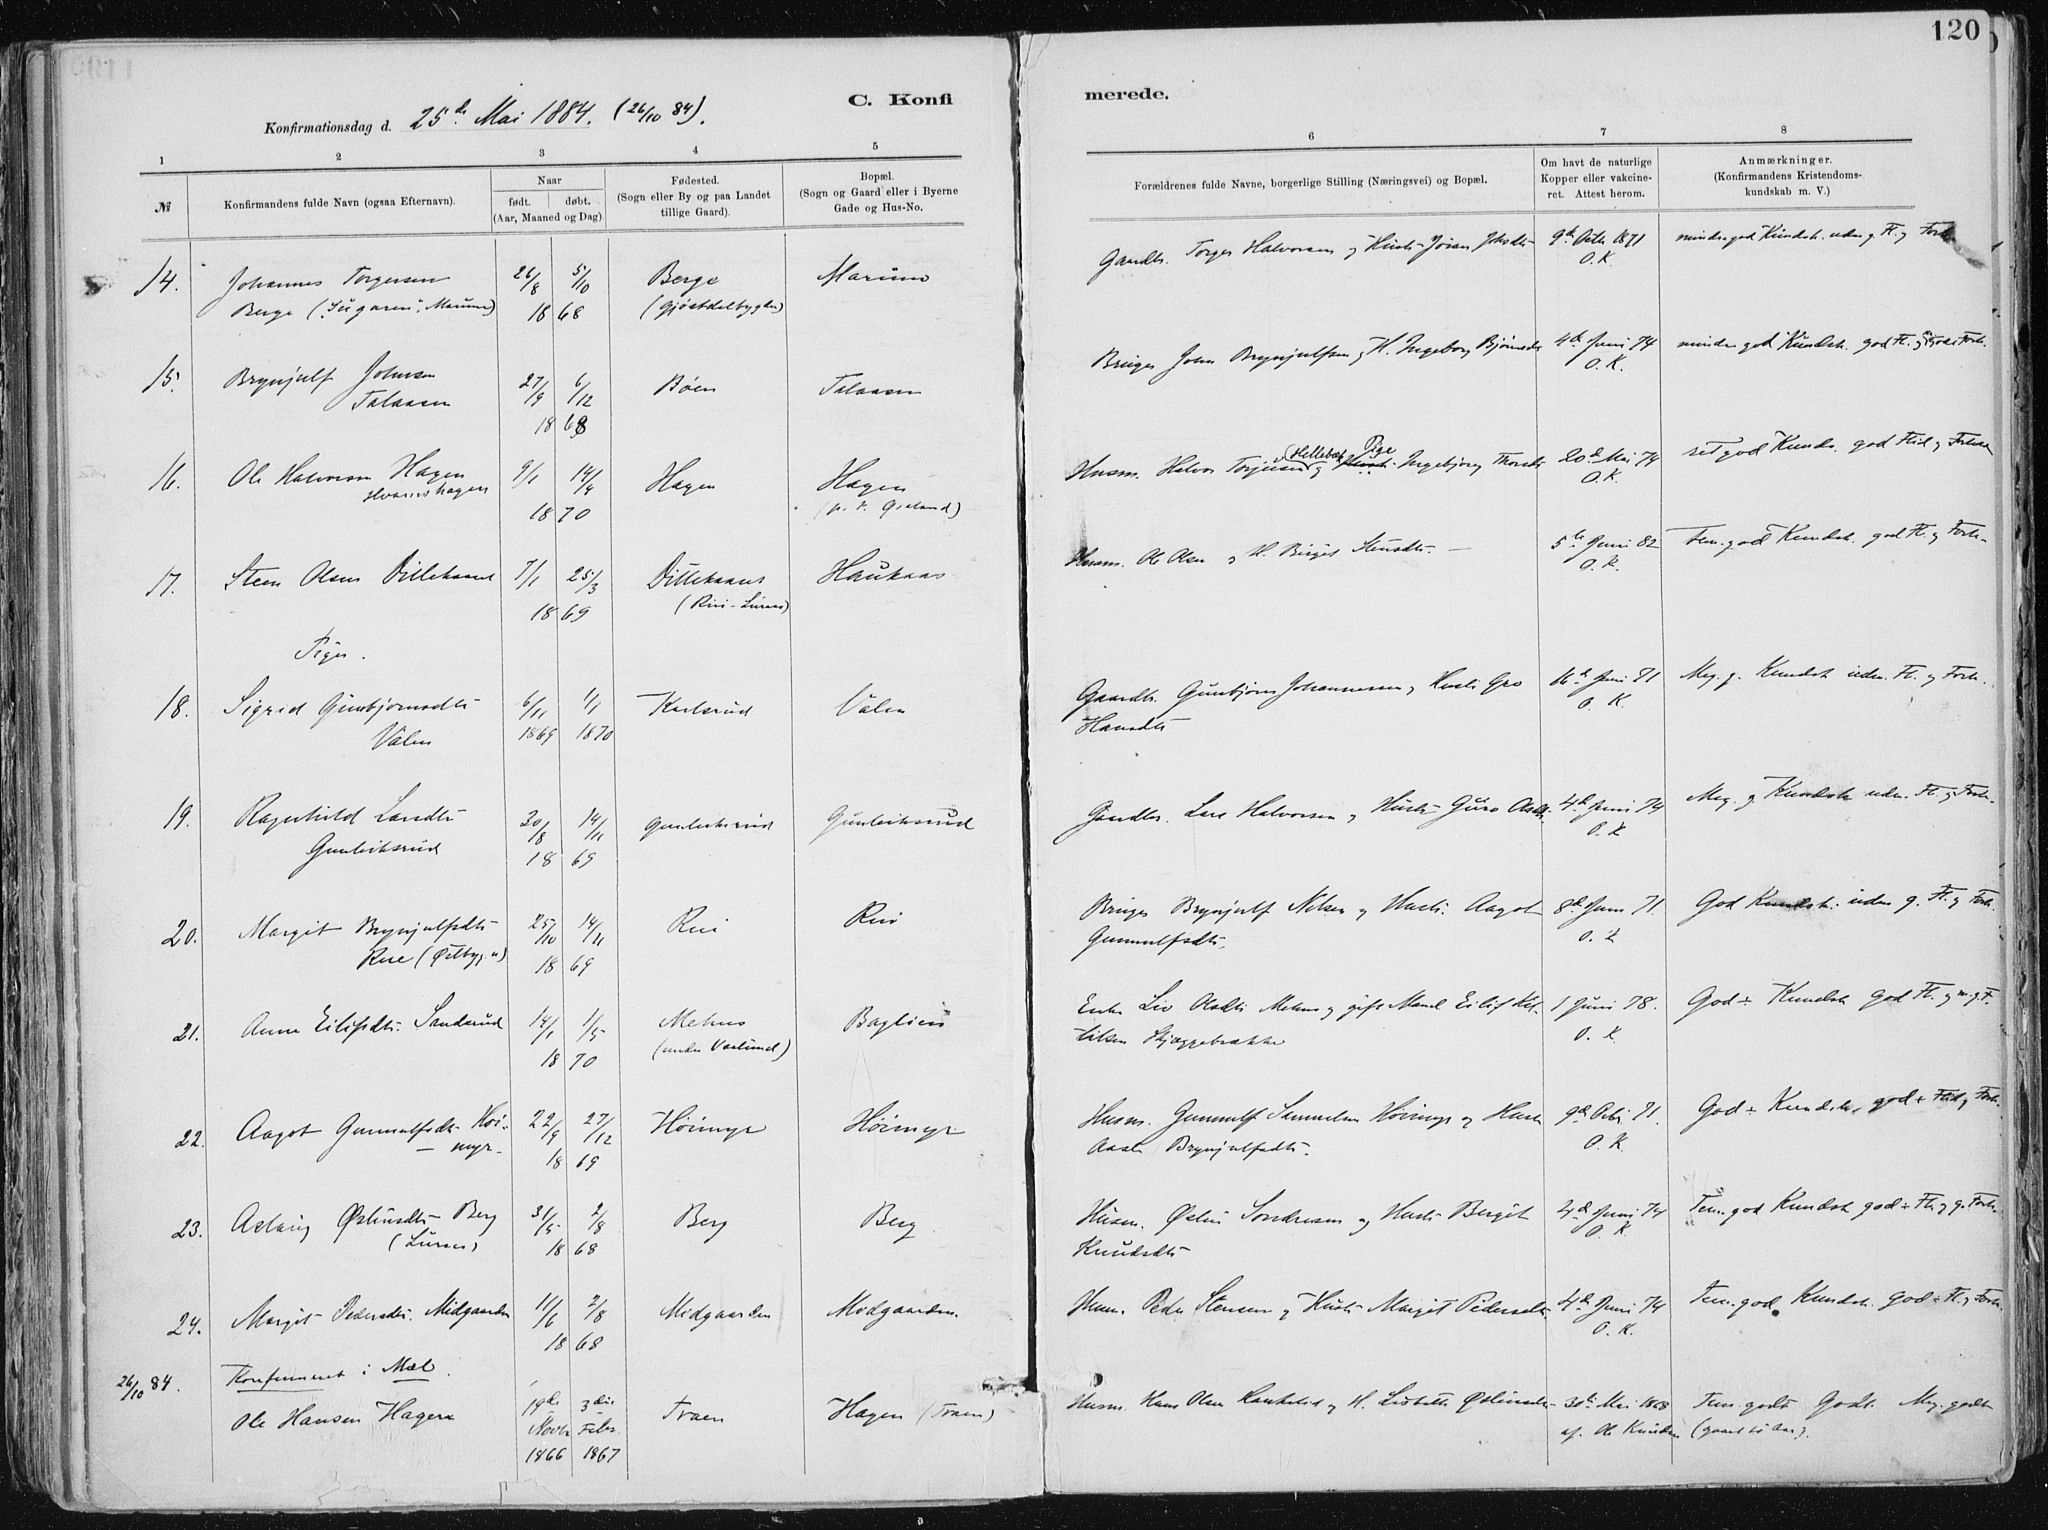 120
C. Konfi
merede.
Konfirmationsdag d. 25de Mai 1884. (26/10 84).
1 2 3 4 5 6 7 8
№
Konfirmandens fulde Navn (ogsaa Efternavn).
Naar
født. døbt.
(Aar, Maaned og Dag).
Fødested.
(Sogn eller By og paa Landet
tillige Gaard).
Bopæl.
(Sogn og Gaard eller i Byerne
Gade og Hus-No.
Forældrenes fulde Navne, borgerlige Stilling (Næringsvei) og Bopæl.
Om havt de naturlige
Kopper eller vakcine-
ret. Attest herom.
Anmærkninger.
(Konfirmandens Kristendoms-
kundskab m. V.)
14. Johannes Torgersen 26/8 5/10 Berge Marum Gaardbr. Torger Halvorsen og Hustr. 9de Octr 1871 mindre god Kundsk. uden g. Fl. og Forh.
Berge 1868 (Gjøstdalbygden) O.K.
15. Brynjulf Johnsen 27/9 6/12 Bøen Talaasen Bruger John Brynjulfsen og H. Ingeborg Bjørnsdtr 4de Juni 74 mindre god Kundsk. god Fl. og Forh.
Talaasen 1868 O.K.
16. Ole Halvorsen Hagen 9/1 14/4 Hagen Hagen Husm. Halvor Torjusen (Hellebek) og Pige Ingebjørg Thorsdtr 20de Mai 74 ret god Kundsk. god Flid og Forhold
1870 O.K.
17. Steen Olsen Dillekaas 7/1 25/3 Dillekaas Haukaas Husm. Ole Olsen og H. Birgit Stensdtr. 5te Juni 82 Tem. god Kundsk. god Fl. og Forh.
1869 O.K.
Piger.
18. Sigrid Gunbjørnsdtr 6/11 1/1 Karlsrud Vaalen Gaardbr. Gunbjørn Johannessen og Hustr. Gro 16de Juni 71 Meg. g. Kundsk. uden. Fl. og Forh.
1869 1870 Hansdtr O.K.
19. Ragnhild Larsdtr 30/8 14/11 Gunleiksrud Gunleiksrud Gaardbr. Lars Halvorsen og Hustr. Guro 4de Juni 74 Meg. g. Kundsk. uden. Fl. og Forh.
Gunleiksrud 1869 O.K.
20. Margit Brynjulfsdtr 25/10 14/11 Rui Rui Bruger Brynjulf Nilsen og Hustr. Aagot 8de Juni 71. God Kundsk. uden g. Fl. og Forh.
Rue 1869 Gunnulfsdtr. O.K.
21. Anne Eilifsdtr. Sandsrud 14/1 1/5 Mehus Baglien Enke Liv Olsdtr Mehus og gift Mand Eilif Ket- 1 Juni 78. God ÷ Kundsk. God Fl. og m. g. F.
1870 tilsen O.K.
22. Aagot Gunnulfsdtr. Høi- 22/9 27/12 Høimyr Høimyr Husm. Gunnulf Samuelsen Høimyr og Hustr. 9de Octbr 71. God ÷ Kundsk., god ÷ Flid og Forh.
myr. 1869 Aaste Brynjulfsdtr. O.K.
23. Aslaug Østensdtr Berg 31/5 2/8 Berg Berg Husm. Østen Sondresen og Hustr. Bergit 4de Juni 74 Tem. god Kundsk. god ÷ Fl. og g. Forh.
1868 Knudsdtr O.K.
24. Margit Pedersdtr. Midgaarden 11/6 2/8 Midgaarden Midgaarden. Husm. Peder Stensen og Hustr. Margit Pedersdtr 4de Juni 74 Tem. god Kundsk. god ÷ Fl. og Forh.
1868 O.K.
26/10 84. Konfirmeret i Mæl.
Ole Hansen Hagen 19de Novbr 1866 3die Febr. 1867 Traen Hagen (Traen) Husm. Hans Olsen og H. Lisbeth Østensdtr 30te Mai 1868 Tem. godt Godt. Meg. godt
af. Ole Knudsen